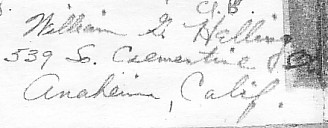 G. B.
William G. Halling
539 So. Clementine
Anaheim, Calif.